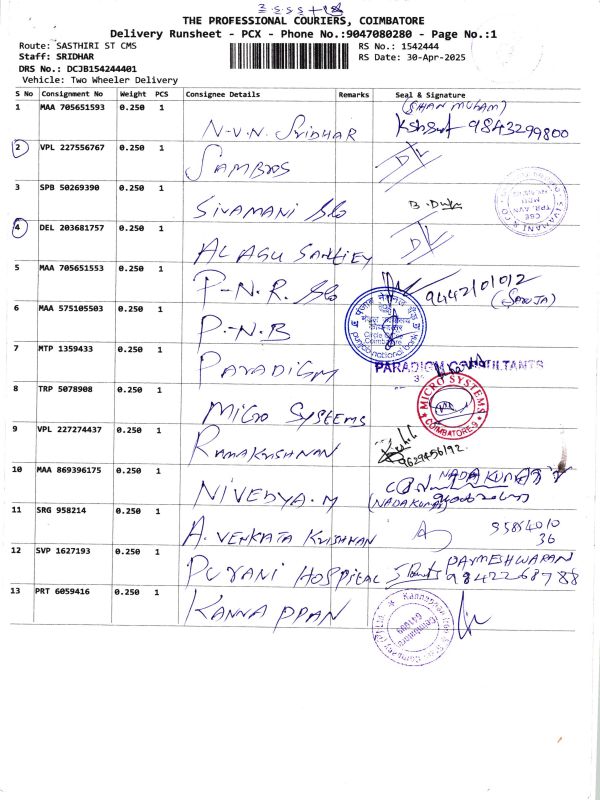 THE PROFESSIONAL COURIERS, COIMBATORE
Delivery Runsheet - PCX - Phone No.:9047080280 - Page No.:1
Route: SASTHIRI ST CMS
RS No.: 1542444
Staff: SRIDHAR
RS Date: 30-Apr-2025
DRS No.: DCJB154244401
Vehicle: Two Wheeler Delivery
S No Consignment No Weight PCS Consignee Details Remarks Seal & Signature
1 MAA 705651593 0.250 1 N-V.N. SRIDHAR (SHAN MUGAM) 9843299800
2 VPL 227556767 0.250 1 SAMBROS
3 SPB 50269390 0.250 1 SIVAMANI &co
4 DEL 203681757 0.250 1 ALAGU
5 MAA 705651553 0.250 1 P-N.R. &co 9442101012
6 MAA 575105503 0.250 1 P-N.B
punjab national bank
Circle
Coimbatore
7 MTP 1359433 0.250 1 PARADIGM PARADIGM CONSULTANTS
8 TRP 5078908 0.250 1 MICRO SYSTEMS
MICRO SYSTEMS
COIMBATORE-9
9 VPL 227274437 0.250 1 RAMAKRISHNAN
10 MAA 869396175 0.250 1 NIVEDYA.M NADAKUMAR
(NADAKUMAR)
11 SRG 958214 0.250 1 A. VENKATA KRISHNAN
12 SVP 1627193 0.250 1 PURANI HOSPITAL PARMESHWARAN
9842268788
13 PRT 6059416 0.250 1 KANNAPPAN
Coimbatore